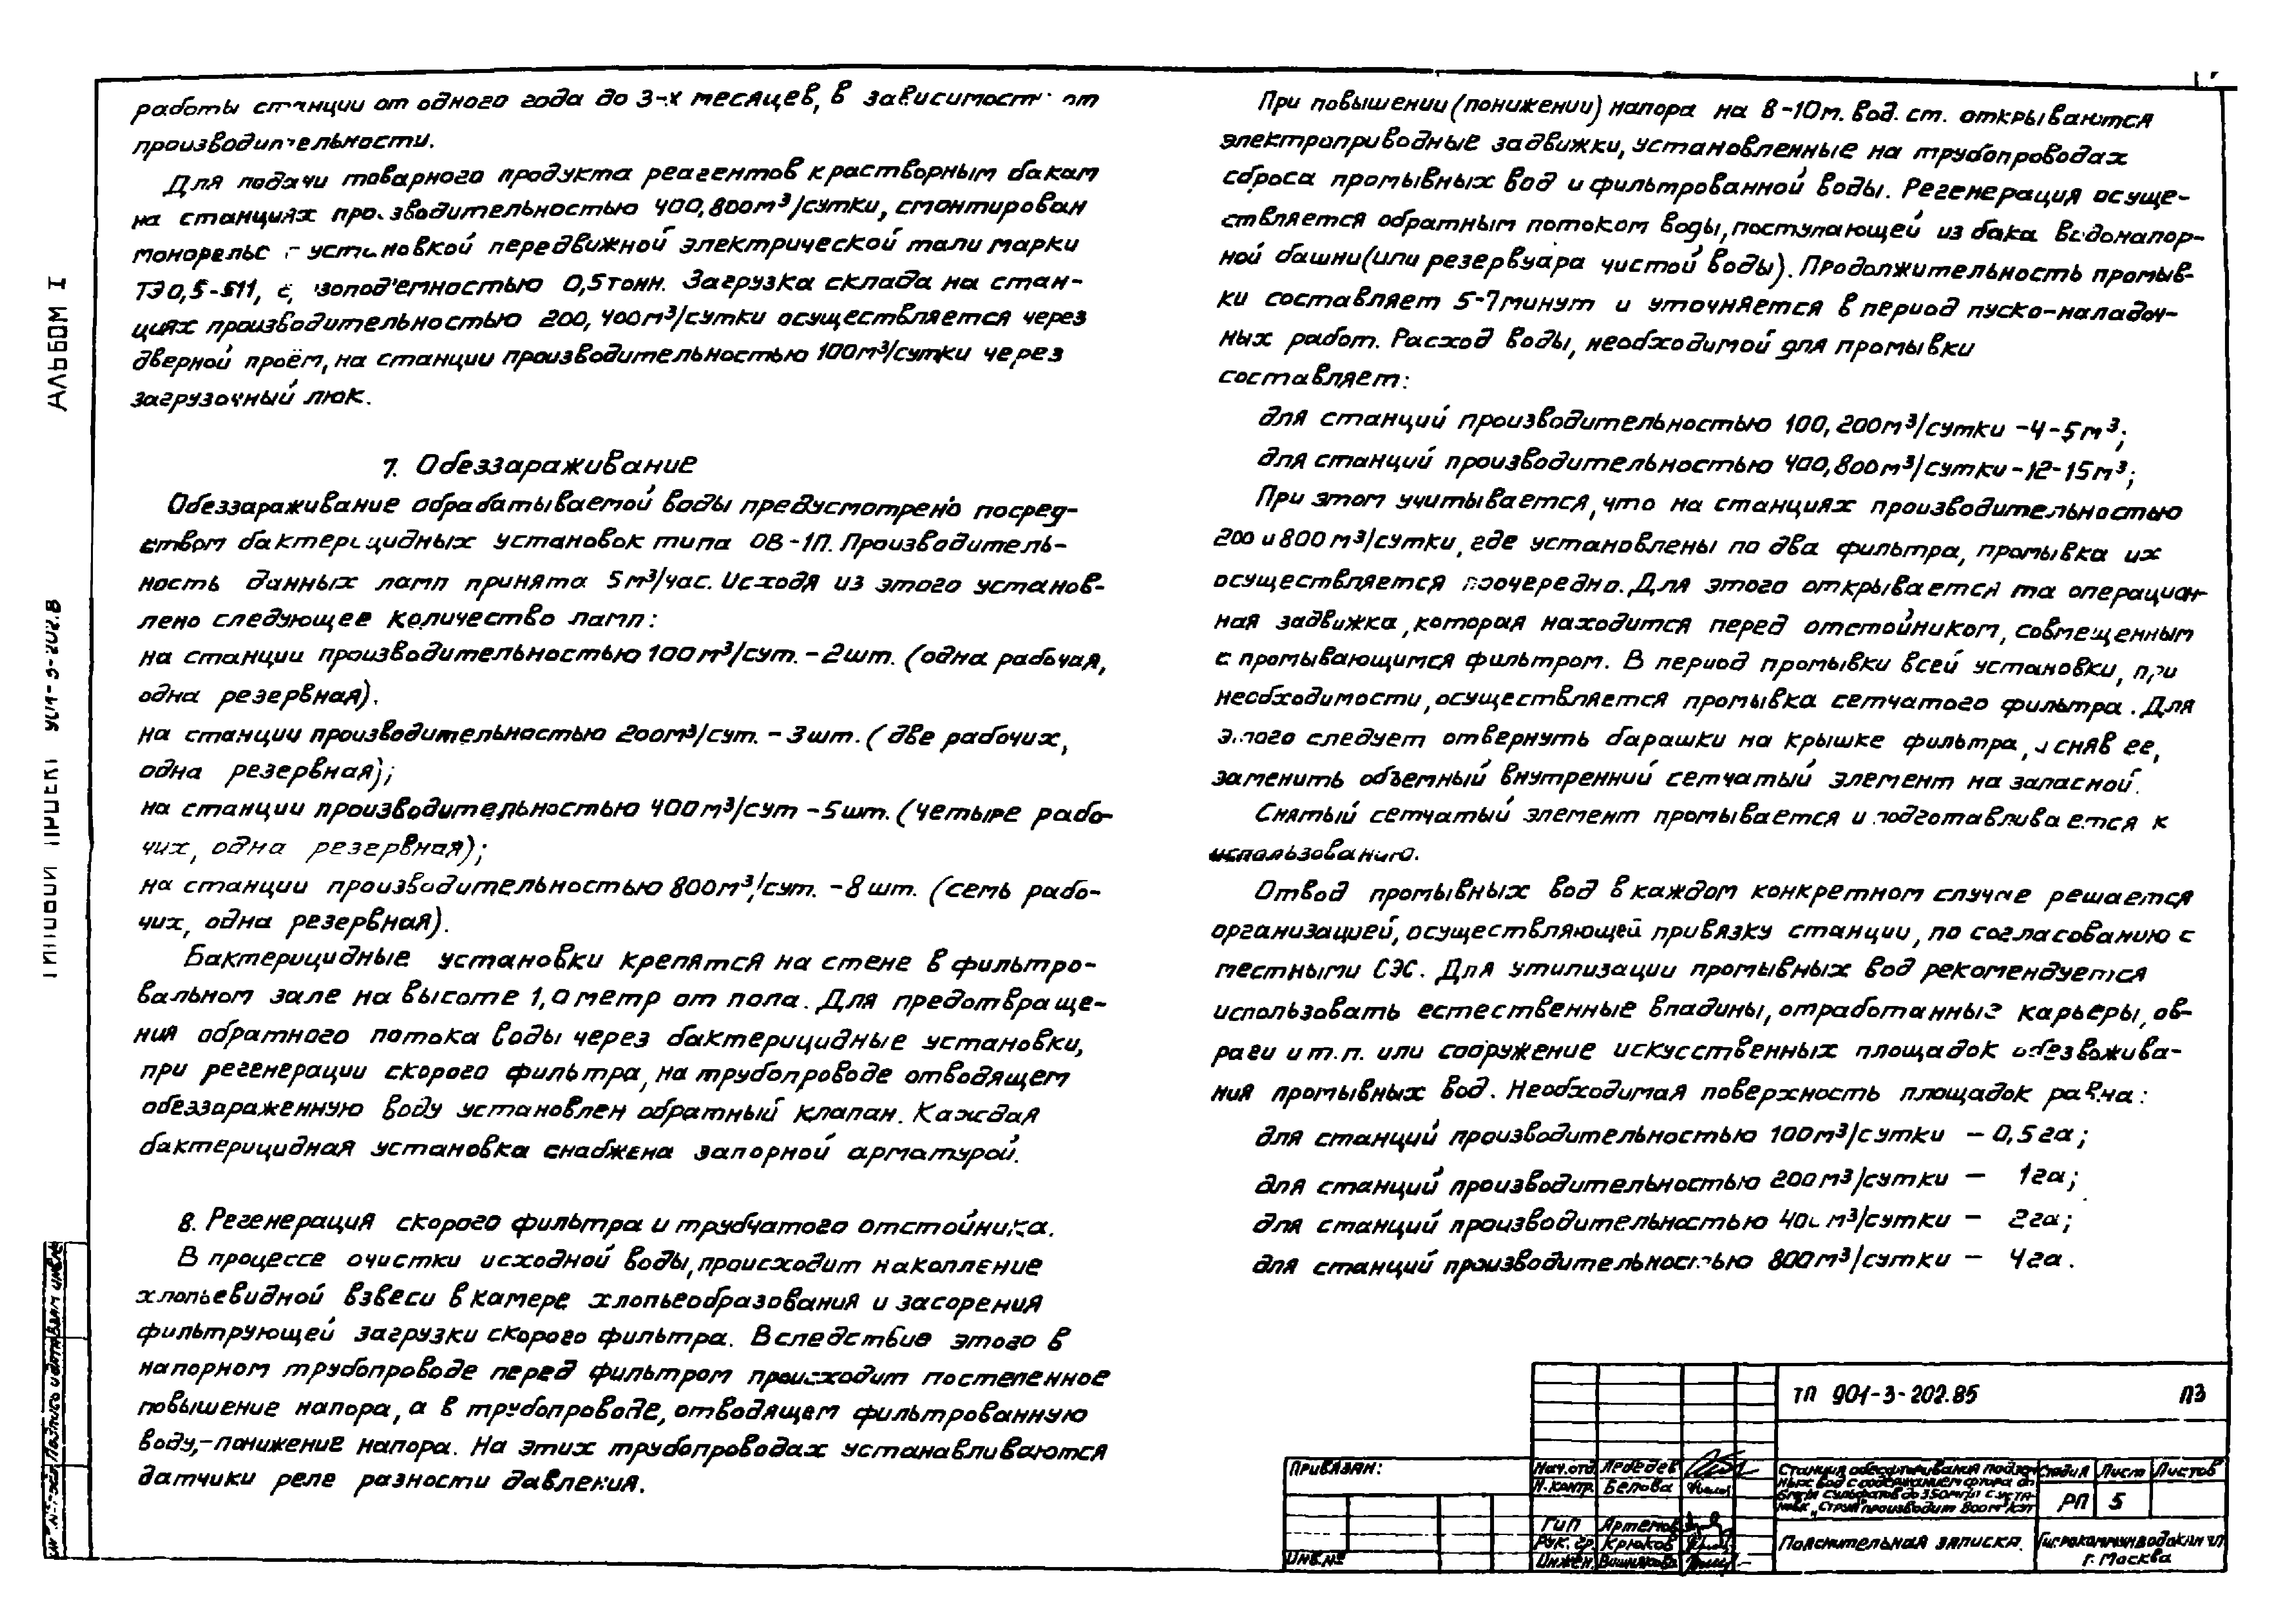 работы станции от одного года до 3-х месяцев, в зависимости от
производительности.
Для подачи товарного продукта реагентов к растворным бакам
на станциях производительностью 400, 800 м³/сутки, смонтирован
монорельс с установкой передвижной электрической тали марки
ТЭ 0,5-511, с, зопод'емностью 0,5 тонн. Загрузка склада на стан-
циях производительностью 200, 400 м³/сутки осуществляется через
дверной проём, на станции производительностью 100 м³/сутки через
загрузочный люк.
7. Обеззараживание
Обеззараживание обрабатываемой воды предусмотрено посред-
ством бактерицидных установок типа ОВ-1П. Производитель-
ность данных ламп принята 5 м³/час. Исходя из этого установ-
лено следующее количество ламп:
на станции производительностью 100 м³/сут. - 2 шт. (одна рабочая,
одна резервная).
на станции производительностью 200 м³/сут. - 3 шт. (две рабочих,
одна резервная);
на станции производительностью 400 м³/сут - 5 шт. (четыре рабо-
чих, одна резервная);
на станции производительностью 800 м³/сут. - 8 шт. (семь рабо-
чих, одна резервная).
Бактерицидные установки крепятся на стене в фильтро-
вальном зале на высоте 1,0 метр от пола. Для предотвраще-
ния обратного потока воды через бактерицидные установки,
при регенерации скорого фильтра, на трубопроводе отводящем
обеззараженную воду установлен обратный клапан. Каждая
бактерицидная установка снабжена запорной арматурой.
8. Регенерация скорого фильтра и трубчатого отстойника.
В процессе очистки исходной воды, происходит накопление
хлопьевидной взвеси в камере хлопьеобразования и засорения
фильтрующей загрузки скорого фильтра. Вследствие этого в
напорном трубопроводе перед фильтром происходит постепенное
повышение напора, а в трубопроводе, отводящем фильтрованную
воду,- понижение напора. На этих трубопроводах устанавливаются
датчики реле разности давления.
При повышении (понижении) напора на 8-10 м. вод. ст. открываются
электроприводные задвижки, установленные на трубопроводах
сброса промывных вод и фильтрованной воды. Регенерация осуще-
ствляется обратным потоком воды, поступающей из бака водонапор-
ной башни (или резервуара чистой воды). Продолжительность промыв-
ки составляет 5-7 минут и уточняется в период пуско-наладоч-
ных работ. Расход воды, необходимой для промывки
составляет:
для станций производительностью 100, 200 м³/сутки - 4-5 м³;
для станций производительностью 400, 800 м³/сутки - 12-15 м³;
При этом учитывается, что на станциях производительностью
200 и 800 м³/сутки, где установлены по два фильтра, промывка их
осуществляется поочередно. Для этого открывается та операцион-
ная задвижка, которая находится перед отстойником, совмещенным
с промывающимся фильтром. В период промывки всей установки, при
необходимости, осуществляется промывка сетчатого фильтра. Для
этого следует отвернуть барашки на крышке фильтра, и сняв ее,
заменить объемный внутренний сетчатый элемент на запасной.
Снятый сетчатый элемент промывается и подготавливается к
использованию.
Отвод промывных вод в каждом конкретном случае решается
организацией, осуществляющей привязку станции, по согласованию с
местными СЭС. Для утилизации промывных вод рекомендуется
использовать естественные впадины, отработанные карьеры, ов-
раги и т.п. или сооружение искусственных площадок обезвожива-
ния промывных вод. Необходимая поверхность площадок равна:
для станций производительностью 100 м³/сутки - 0,5 га;
для станций производительностью 200 м³/сутки - 1 га;
для станций производительностью 400 м³/сутки - 2 га;
для станций производительностью 800 м³/сутки - 4 га.
АЛЬБОМ I
ТП 901-3-202.85 ПЗ
Привязан:
Инв.№
Нач.отд. Лебедев
Н.контр. Белова
ГИП Артемов
Рук. гр. Крюков
Инжен.
Станция обесфторивания подзем-
ных вод с содержанием фтора до
"Струя" производит. 800 м³/сут
Стадия Лист Листов
РП 5
Пояснительная записка.
г. Москва